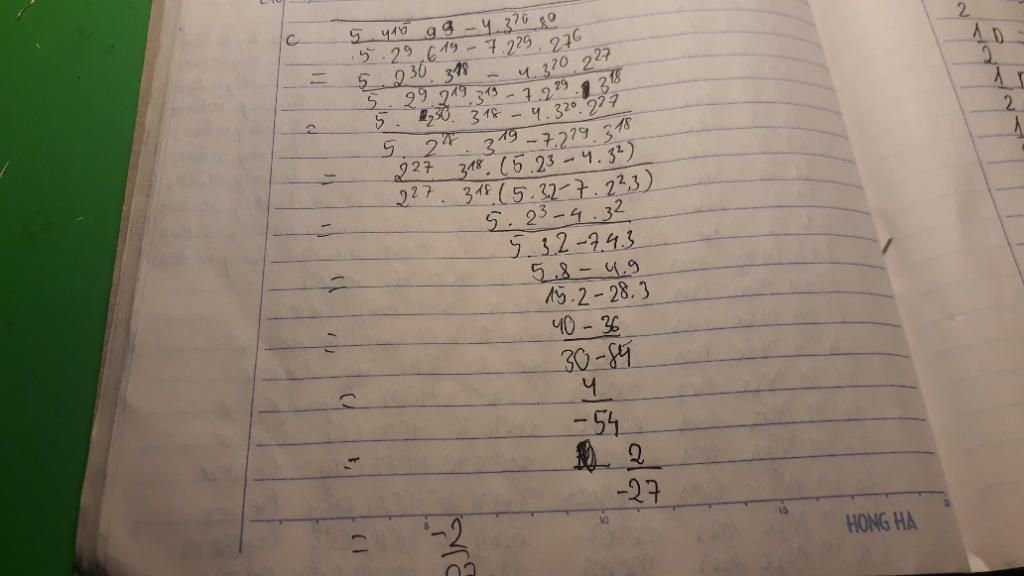 c 5.4¹⁵.9⁹ − 4.3²⁰.8⁹
5.2⁹.6¹⁹ − 7.2²⁹.27⁶
= 5.2³⁰.3¹⁸ − 4.3²⁰.2²⁷
5.2⁹.2¹⁹.3¹⁹ − 7.2²⁹.3¹⁸
= 5.2³⁰.3¹⁸ − 4.3²⁰.2²⁷
5.2²⁸.3¹⁹ − 7.2²⁹.3¹⁸
= 2²⁷.3¹⁸.(5.2³ − 4.3²)
2²⁷.3¹⁸.(5.3.2 − 7.2².3)
= 5.2³ − 4.3²
5.3.2 − 7.4.3
= 5.8 − 4.9
15.2 − 28.3
= 40 − 36
30 − 84
= 4
−54
= 2
−27
HONG HA
= −2
2
1
2
1
2
1